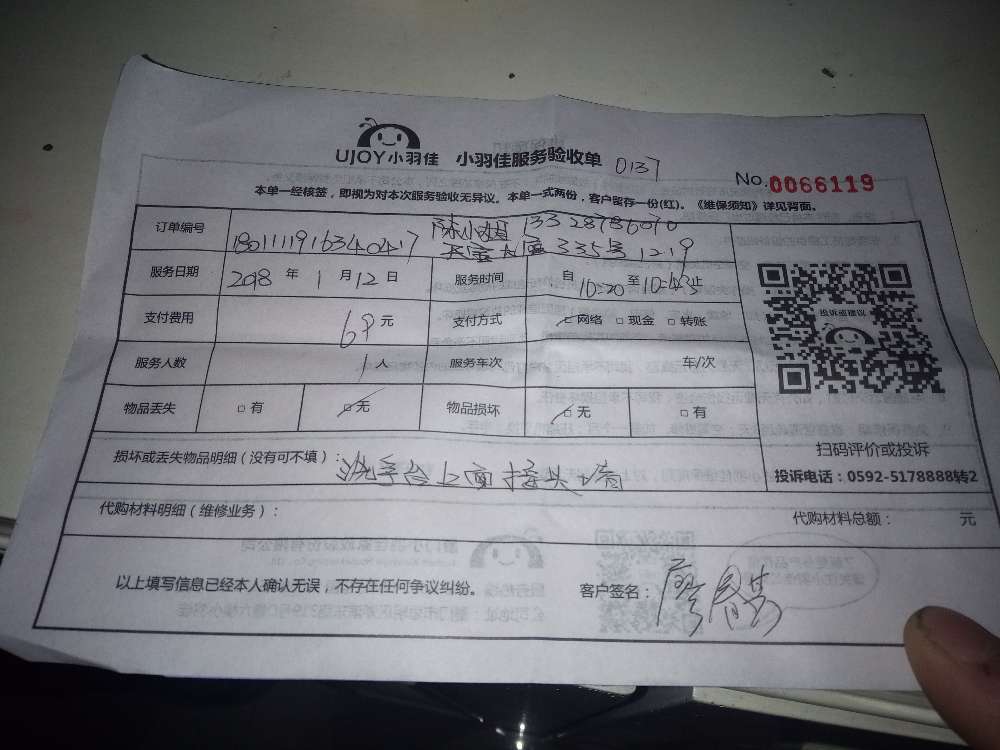 UJOY小羽佳 小羽佳服务验收单 0137
No.0066119
本单一经核签，即视为对本次服务验收无异议。本单一式两份，客户留存一份(红)。《维保须知》详见背面。
订单编号
陈小姐
335号 1219
服务日期 2018 年 1 月 12 日 服务时间 自 10:20 至 10:45 止
支付费用 69 元 支付方式 网络 现金 转账
服务人数 1 人 服务车次 车/次
物品丢失 有 无 物品损坏 无 有
投诉或建议
扫码评价或投诉
投诉电话：0592-5178888转2
损坏或丢失物品明细（没有可不填）：洗手台上面接头堵
代购材料明细（维修业务）： 代购材料总额： 元
以上填写信息已经本人确认无误，不存在任何争议纠纷。 客户签名：